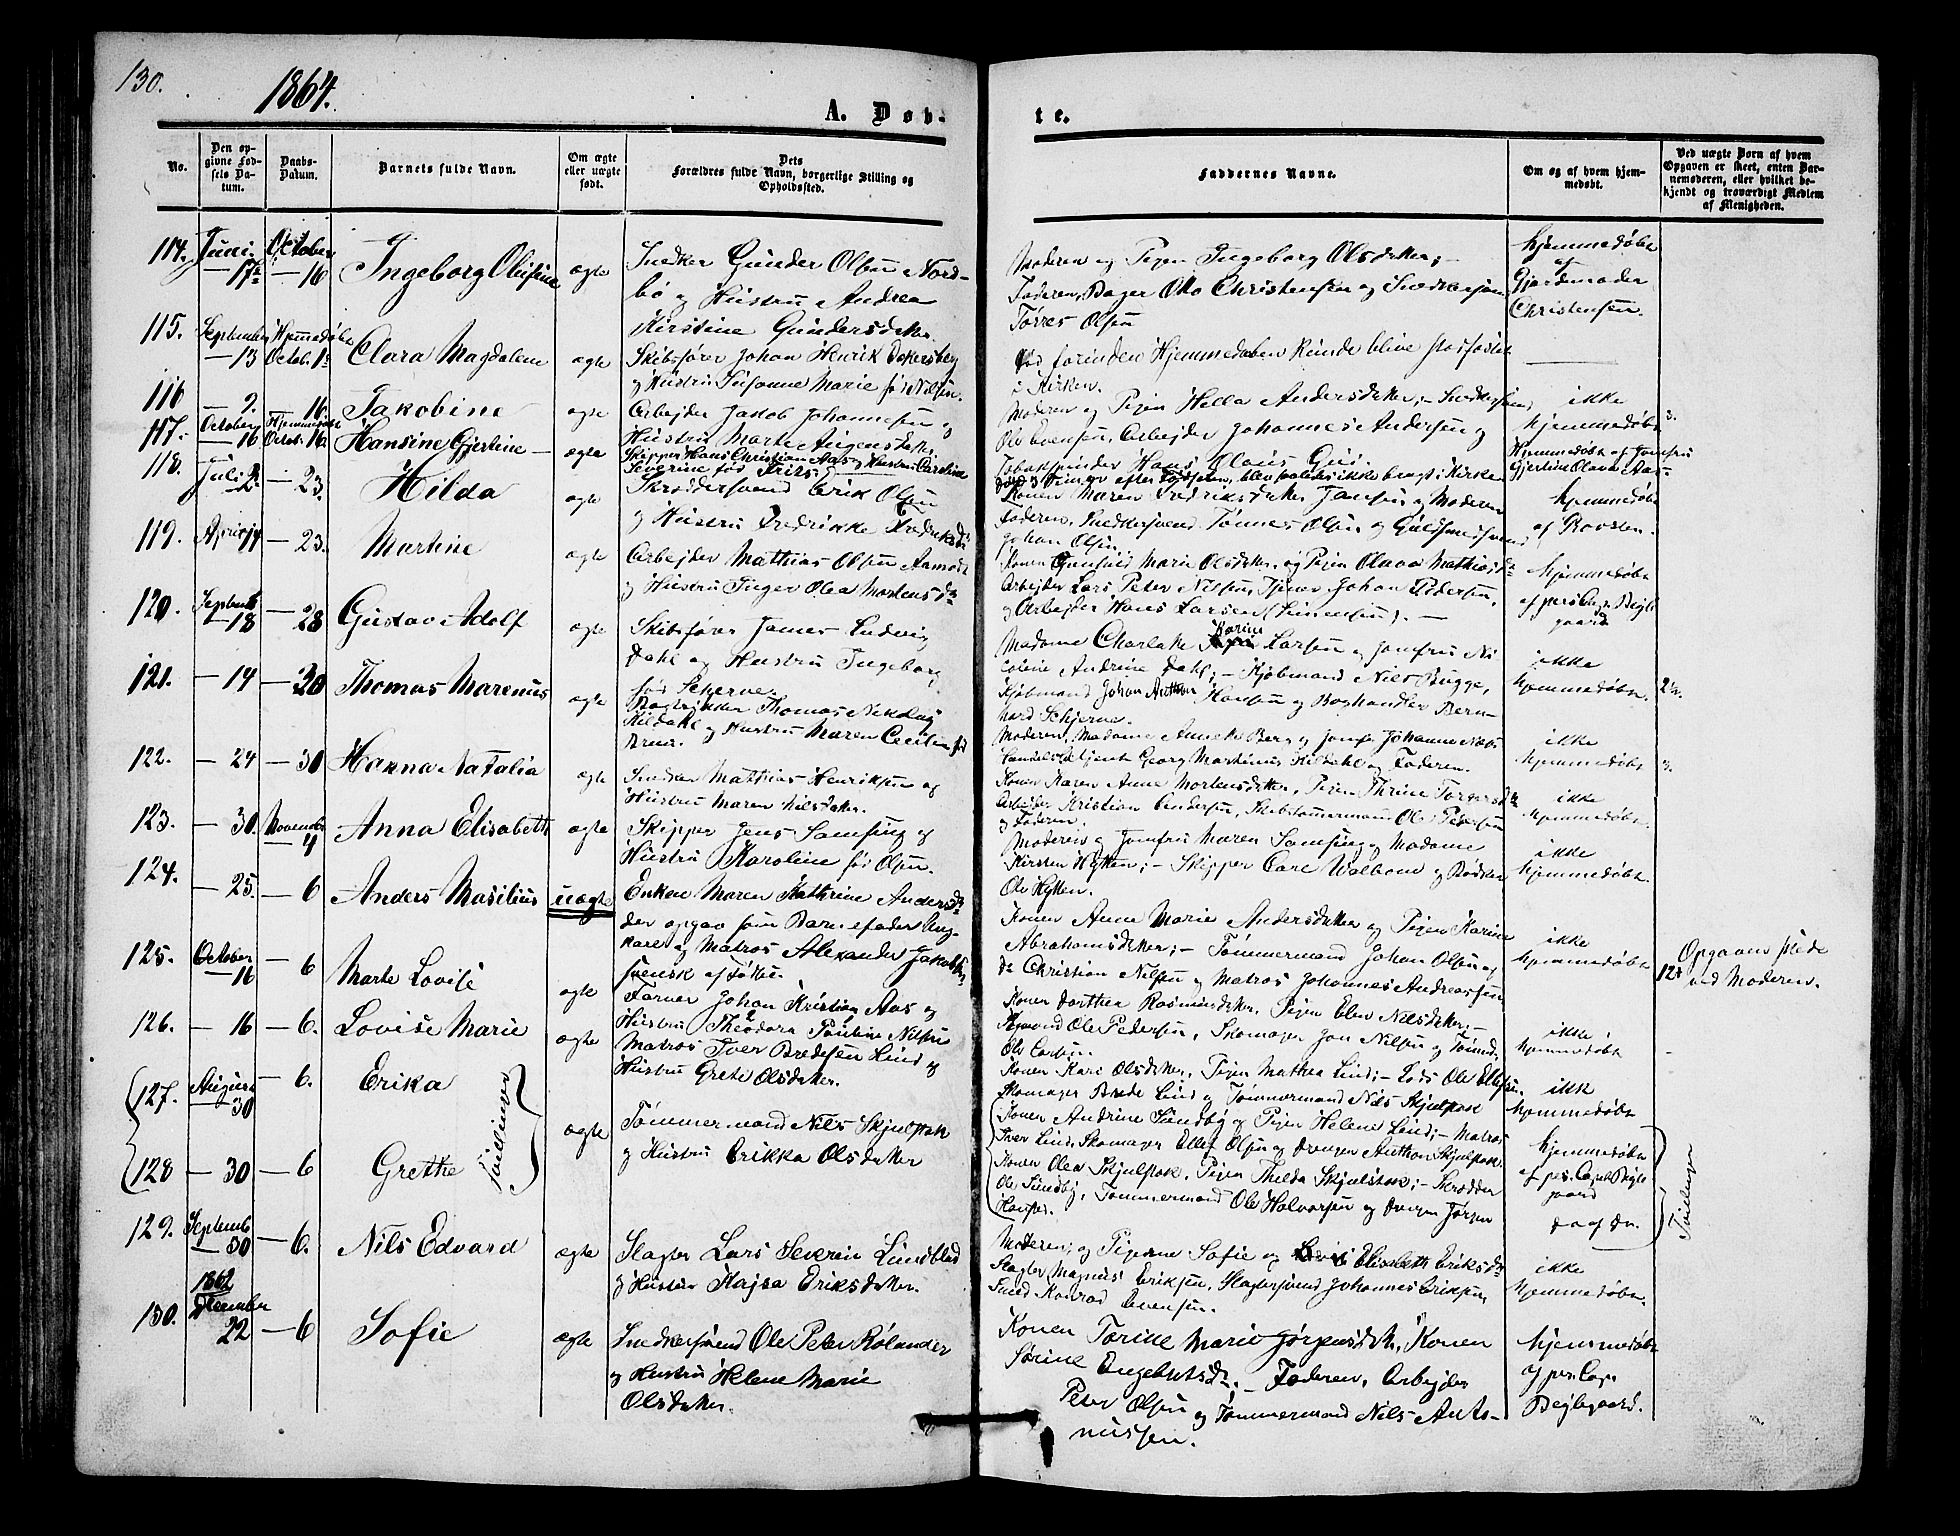 130.
1864.
A. Døb-
te.
No.
Den op-
givne Fød-
sels Da-
tum.
Daabs-
Datum.
Barnets fulde Navn.
Om ægte
eller uægte
født.
Dets
Forældres fulde Navn, borgerlige Stilling og
Opholdssted.
Faddernes Navne.
Om og af hvem hjem-
medøbt.
Ved uægte Børn af hvem
Opgaven er skeet, enten Bar-
nemoderen, eller hvilket be-
kjendt og troværdigt Medlem
af Menigheden.
114. Juni 17de October 16 Ingeborg Olufine ægte
Snedker Gunder Olsen Nord-
bø og Hustru Andrea
Kirstine Gundersdatter.
Moderen og Pigen Ingeborg Olsdatter; –
Faderen, Bager Otto Christensen og Snedkersvend
Tørres Olsen
hjemmedøbt
af
Gjordemoder
Christensen.
115. September 13 Hjemmedøbt Octob. 1ste Clara Magdalene ægte
Skibsfører Johan Henrik
og Hustru Susanne Marie fød Nielsen.
forinden Hjemmedaaben kunde blive stadfæstet
i Kirken.
116 – 9. – 16. Jakobine ægte
Arbejder Jakob Johannesen og
Hustru Marte
Moderen og Pigen Hella Andersdatter; – Snedkersvend
Ole Evensen, Arbejder Johannes Andersen og
Tobakspinder Hans Olaus
ikke
hjemmedøbt
3.
117. October 16 Hjemmedøbt Octob. 16de Hansine Gjertine – ægte
Skipper Hans Christian Aas og Hustru Caroline
Severine fød
døde Timer efter Fødselen, blev saaledes ikke bragt i Kirken
Hjemmedøbt af Jomfru
Gjertine Olava Aas
118. Juli 2 – 23. Hilda ægte
Skræddersvend Erik Olsen
og Hustru Fredrikke Fredriksdr
Konen Maren Fredriksdatter Jansen og Moderen
Faderen, Snedkersvend Tønnes Olsen og Guldsmedsvend
Johan Olsen.
hjemmedøbt
af Provsten.
119. April 14 – 23. Martine ægte
Arbejder Mathias Olsen Aamodt
og Hustru Inger Olea Mortensdr
Konen Gunhild Marie Olsdatter, og Pigen Olava Mathiasdr
Arbejder Lars Peter Nilsen, Tjener Johan Pedersen,
og Arbejder Hans Larsen
hjemmedøbt
af pers. Cap. Bugle-
gaard
120. September 18 – 28 Gustav Adolf ægte
Skibsfører James Ludvig
Dahl og Hustru Ingeborg
fød Schjerve.
Madame Charlotte Karine Larsen og Jomfru Ni-
coline Andrine Dahl; – Kjøbmand Nils Bugge,
Kjøbmand Johan Anthon Hansen og Boghandler Bern-
hard Schjerve.
ikke
hjemmedøbt
121. – 14 – 30 Thomas Marenius ægte
Bogtrykker Thomas Nikolay
Kildahl og Hustru Maren Cecilie fød
Moderen, Madame Annette Berg og Jomfr Johanne Næss
Handelsbetjent Georg Martinus Kildahl og Faderen.
ikke
hjemmedøbt
3.
122. – 24 – 30 Hanna Natalia ægte
Snedker Mathias Henriksen og
Hustru Maren Nilsdatter.
Konen Karen Anne Mortensdatter, Pigen Thrine Torgersdr
Arbejder Kristian Andersen, Skibstømmermand Ole Pedersen
og Faderen.
ikke
hjemmedøbt.
123. – 30. November 4 Anna Elisabeth ægte
Skipper Jens Samsing og
Hustru Karoline fød Olsen.
Moderen og Jomfru Maren Samsing og Madame
Kirsten Hytten; – Skipper Carl Walbom og Bødker
Ole Hytten.
ikke
hjemmedøbt
124. – 25. – 6 Anders Masilius uægte
Enken Maren Kathrine Andersdr
der opgav som Barnefader
og Matros Alexander Jakobsen
svensk af Fødsel.
Konen Anne Marie Andersdatter og Pigen Karine
Abrahamsdatter; – Tømmermand Johan Olsen og
do Christian Nilsen og Matros Johannes Andreassen
ikke
hjemmedøbt
Opgaven skede
ved Moderen.
125. October 16 – 6 Marte Lovise ægte
Farver Johan Kristian Aas og
Hustru Theodora Pauline Nilsen
Konen Dorthea Rasmusdatter, Pigen Elen Nilsdatter; –
Ole Pedersen, Skomager Jon Nilsen og Tømmd.
Ole Larsen.
ikke
hjemmedøbt
126. – 16 – 6. Lovise Marie ægte
Matros Iver Bredesen Lind og
Hustru Grete Olsdatter.
Konen Kari Olsdatter, Pigen Mathea Lind; – Lods Ole Ellefsen.
Skomager Brede Lind og Tømmermand Nils Skjulstok
ikke
hjemmedøbt
127. August 30 – 6. Erika
128 – 30 – 6 Grethe
Tvillinger
ægte
Tømmermand Nils Skjulstok
og Hustru Erikka Olsdatter
Konen Andrine Sundby og Pigen Helene Lind; – Matros
Iver Lind, Skomager Ellef Olsen og Drengen Anthon Skjulstok.
Konen Olea Skjulstok, Pigen Thilda Skjulstok; – Skrædder
Ole Sundby, Tømmermand Ole Halvorsen og Drengen Jørgen
Hansen.
hjemmedøbt
af pers. Capel. Bugle-
gaard
do af do.
Tvillinger
129. September 30 – 6. Nils Edvard ægte
Slagter Lars Severin Lundblad
og Hustru Kajsa Eriksdatter.
Moderen, og Pigerne Sofie og Elisabeth Eriksdr
Slagter Magnus Eriksen, Slagtersvend Johannes Eriksen,
Smed Konrad Evensen.
ikke
hjemmedøbt.
130. 1862 December 22 – 6 Sofie ægte
Snedkersvend Ole Peter Rølander
og Hustru Helene Marie
Olsdatter.
Konen Torine Marie Jørgensdatter, Konen
Sørine Engebretsdr. – Faderen, Arbejder
Peter Olsen og Tømmermand Nils Anto-
niussen.
hjemmedøbt
af pers. Cap.
Buglegaard.